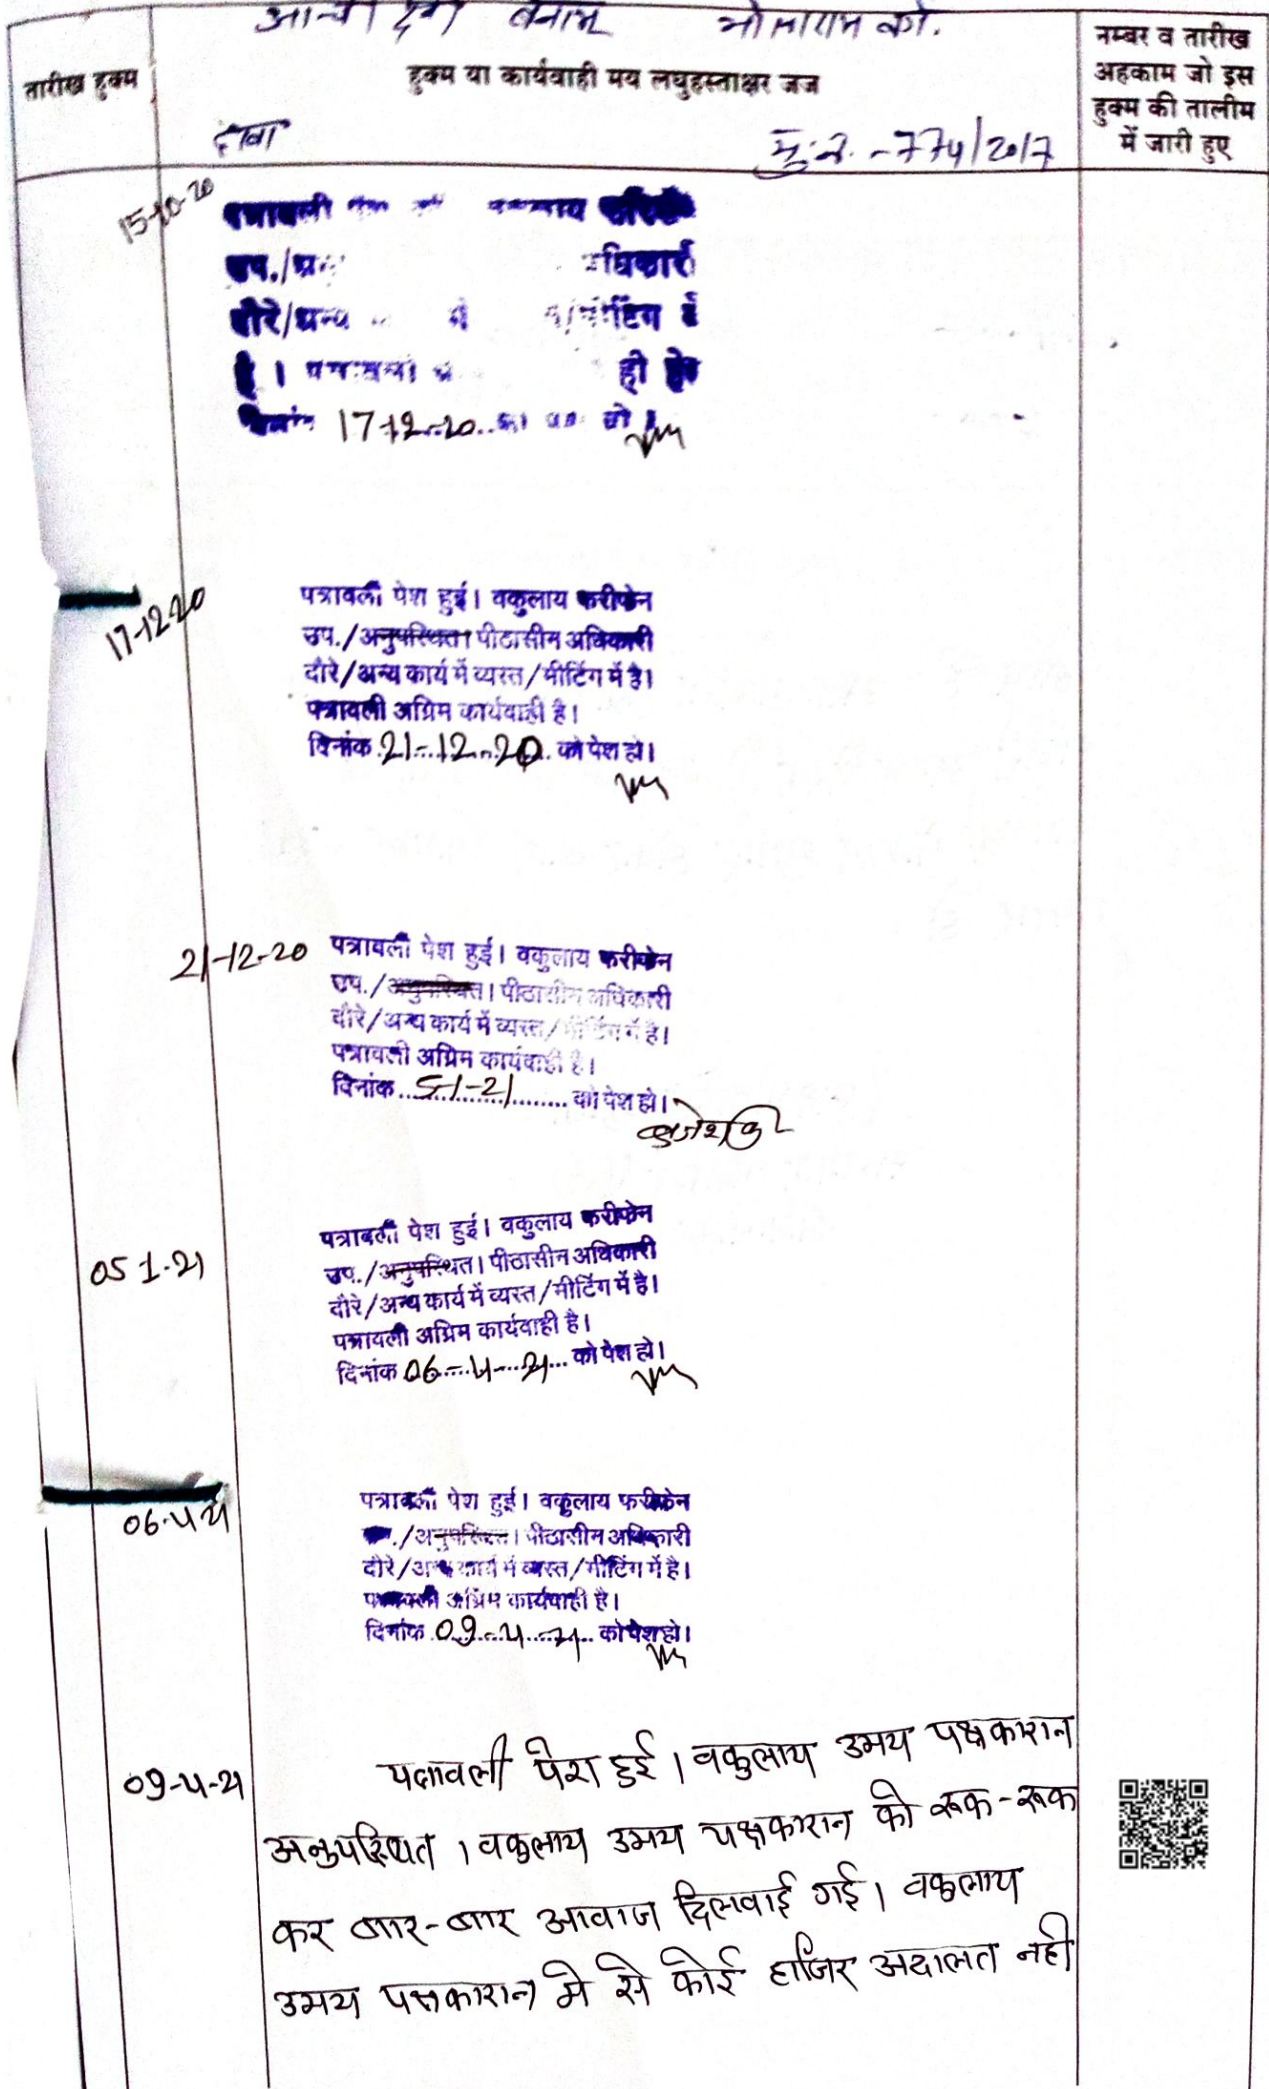 बनाम
तारीख हुक्म
हुक्म या कार्यवाही मय लघुहस्ताक्षर जज
नम्बर व तारीख
अहकाम जो इस
हुक्म की तालीम
में जारी हुए
दावा
मु.न. - 774/2017
15-10-20
पत्रावली
उप./
दौरे/अन्य
है।
दिनांक 17-12-20
17-12-20
पत्रावली पेश हुई। वकुलाय फरीकेन
उप./अनुपस्थित। पीठासीन अधिकारी
दौरे/अन्य कार्य में व्यस्त/मीटिंग में है।
पत्रावली अग्रिम कार्यवाही है।
दिनांक 21-12-20 को पेश हो।
21-12-20
पत्रावली पेश हुई। वकुलाय फरीकेन
उप./अनुपस्थित। पीठासीन अधिकारी
दौरे/अन्य कार्य में व्यस्त/मीटिंग में है।
पत्रावली अग्रिम कार्यवाही है।
दिनांक 5-1-21 को पेश हो।
05 1-21
पत्रावली पेश हुई। वकुलाय फरीकेन
उप./अनुपस्थित। पीठासीन अधिकारी
दौरे/अन्य कार्य में व्यस्त/मीटिंग में है।
पत्रावली अग्रिम कार्यवाही है।
दिनांक 06-4-21 को पेश हो।
06-4-21
पत्रावली पेश हुई। वकुलाय फरीकेन
/अनुपस्थित। पीठासीन अधिकारी
दौरे/अन्य कार्य में व्यस्त/मीटिंग में है।
पत्रावली अग्रिम कार्यवाही है।
दिनांक 09-4-21 को पेश हो।
09-4-21
पत्रावली पेश हुई। वकुलाय उभय पक्षकारान
अनुपस्थित। वकुलाय उभय पक्षकारान को रूक-रूक
कर बार-बार आवाज दिलवाई गई। वकुलाय
उभय पक्षकारान मे से कोई हाजिर अदालत नही